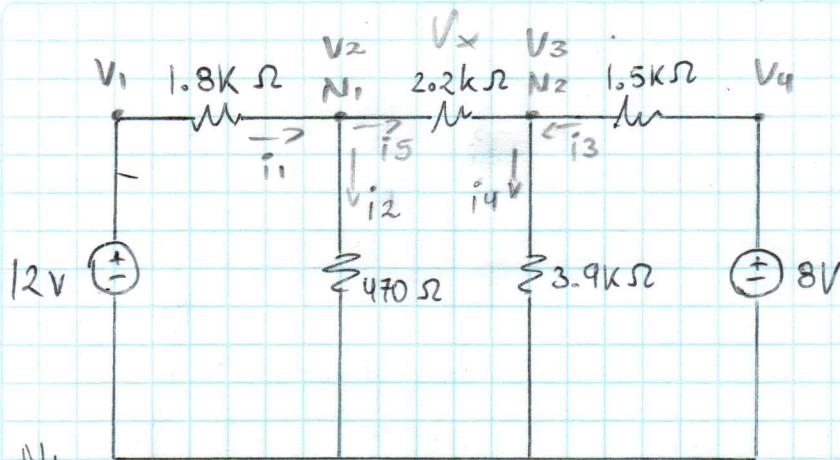 V2 Vx V3
V1 1.8K Ω N1 2.2k Ω N2 1.5K Ω V4
i1 i5 i3
i2 i4
12V 470 Ω 3.9K Ω 8V
+ - + -